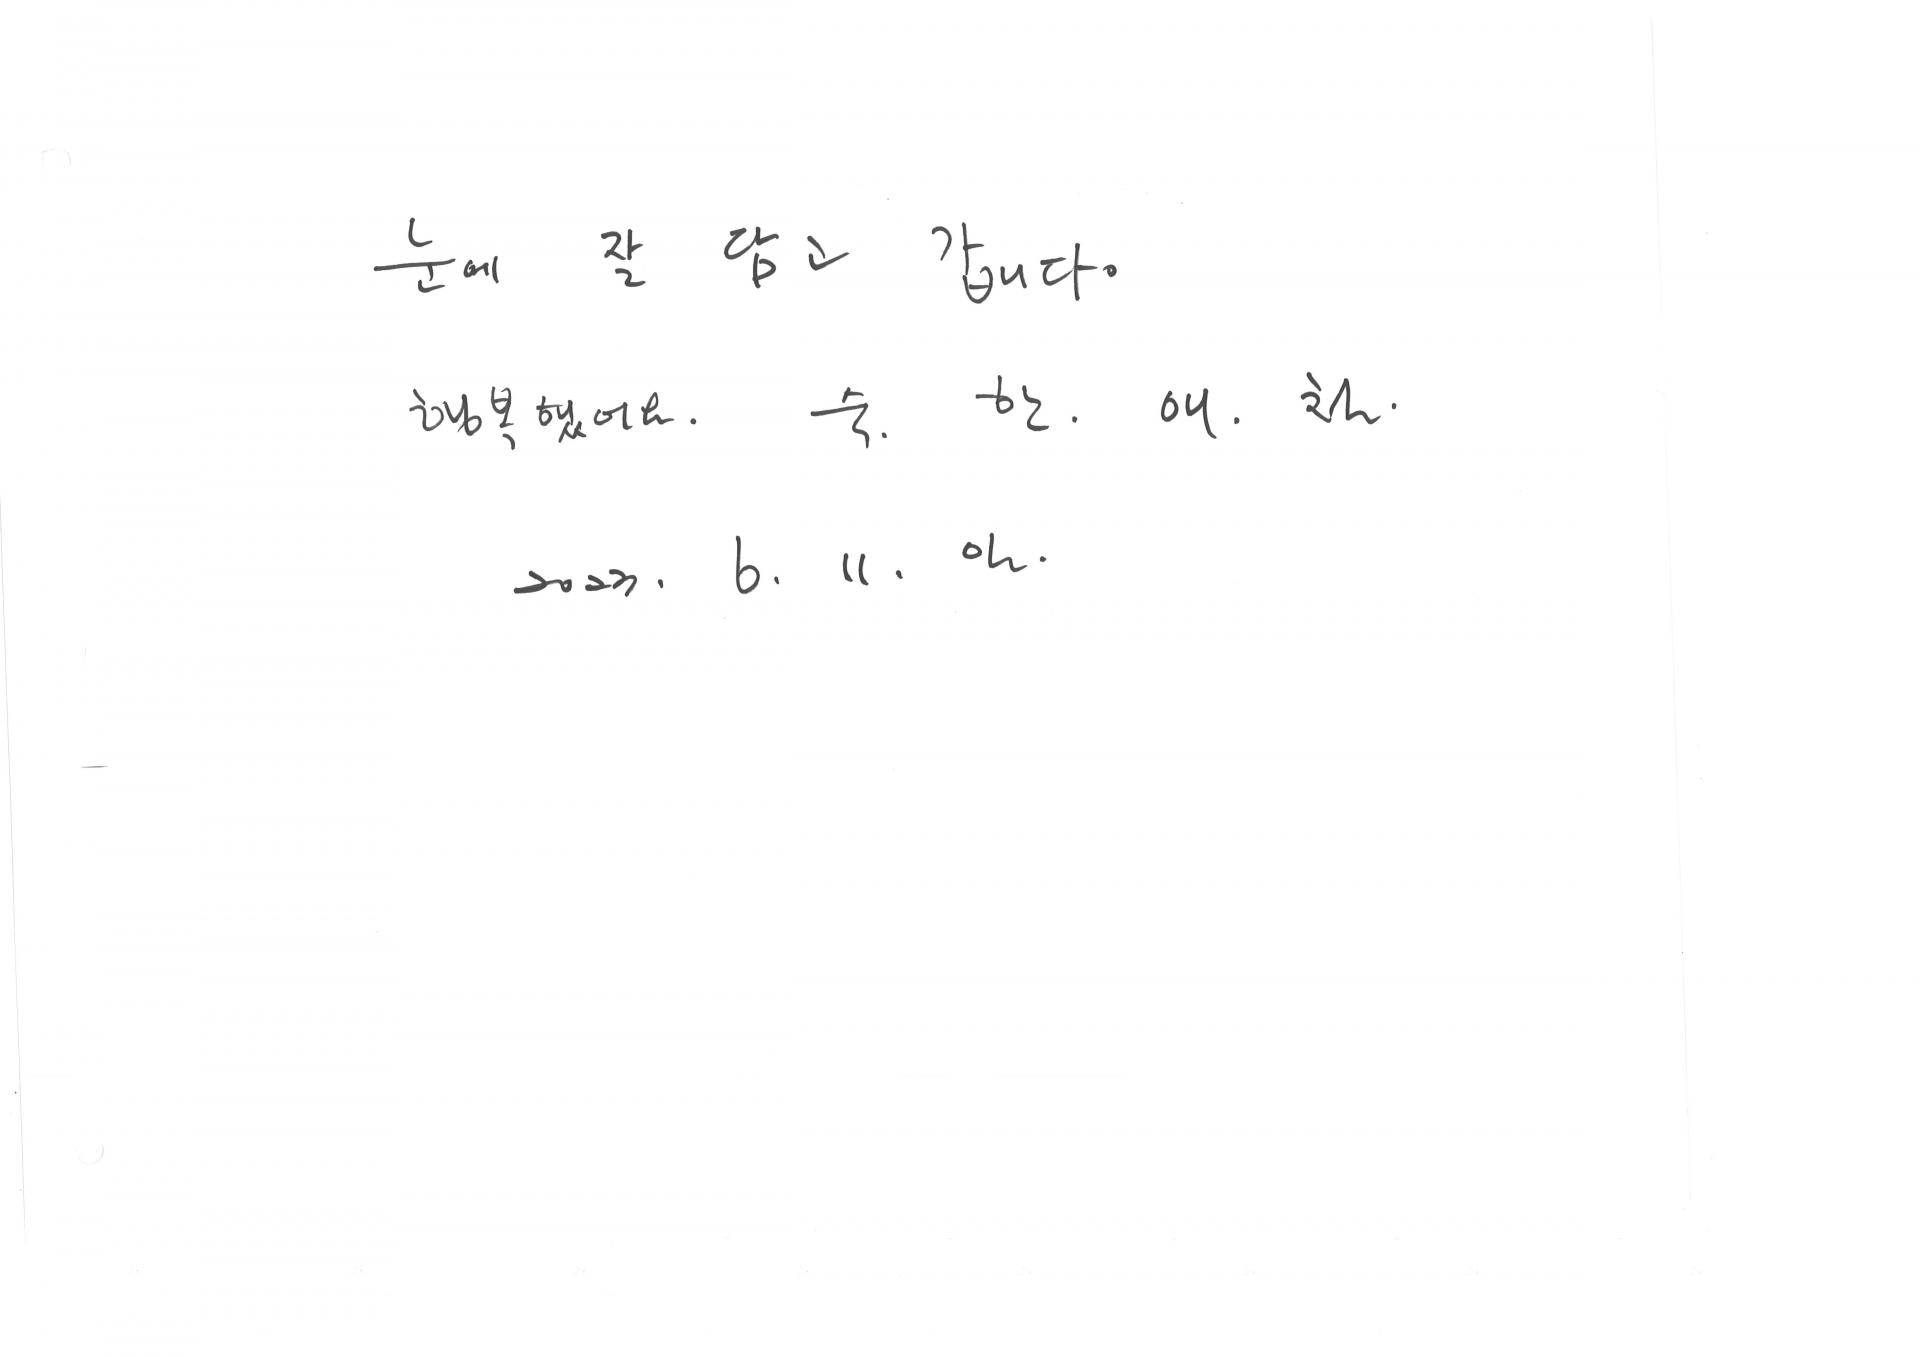 눈에 잘 담고 갑니다.
행복했어요. 숙. 한. 애. 화.
2023. 6. 11.